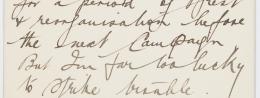 for a period of rest
& reorganisation before
the next Campaign
But I'm far too lucky
to strike trouble.